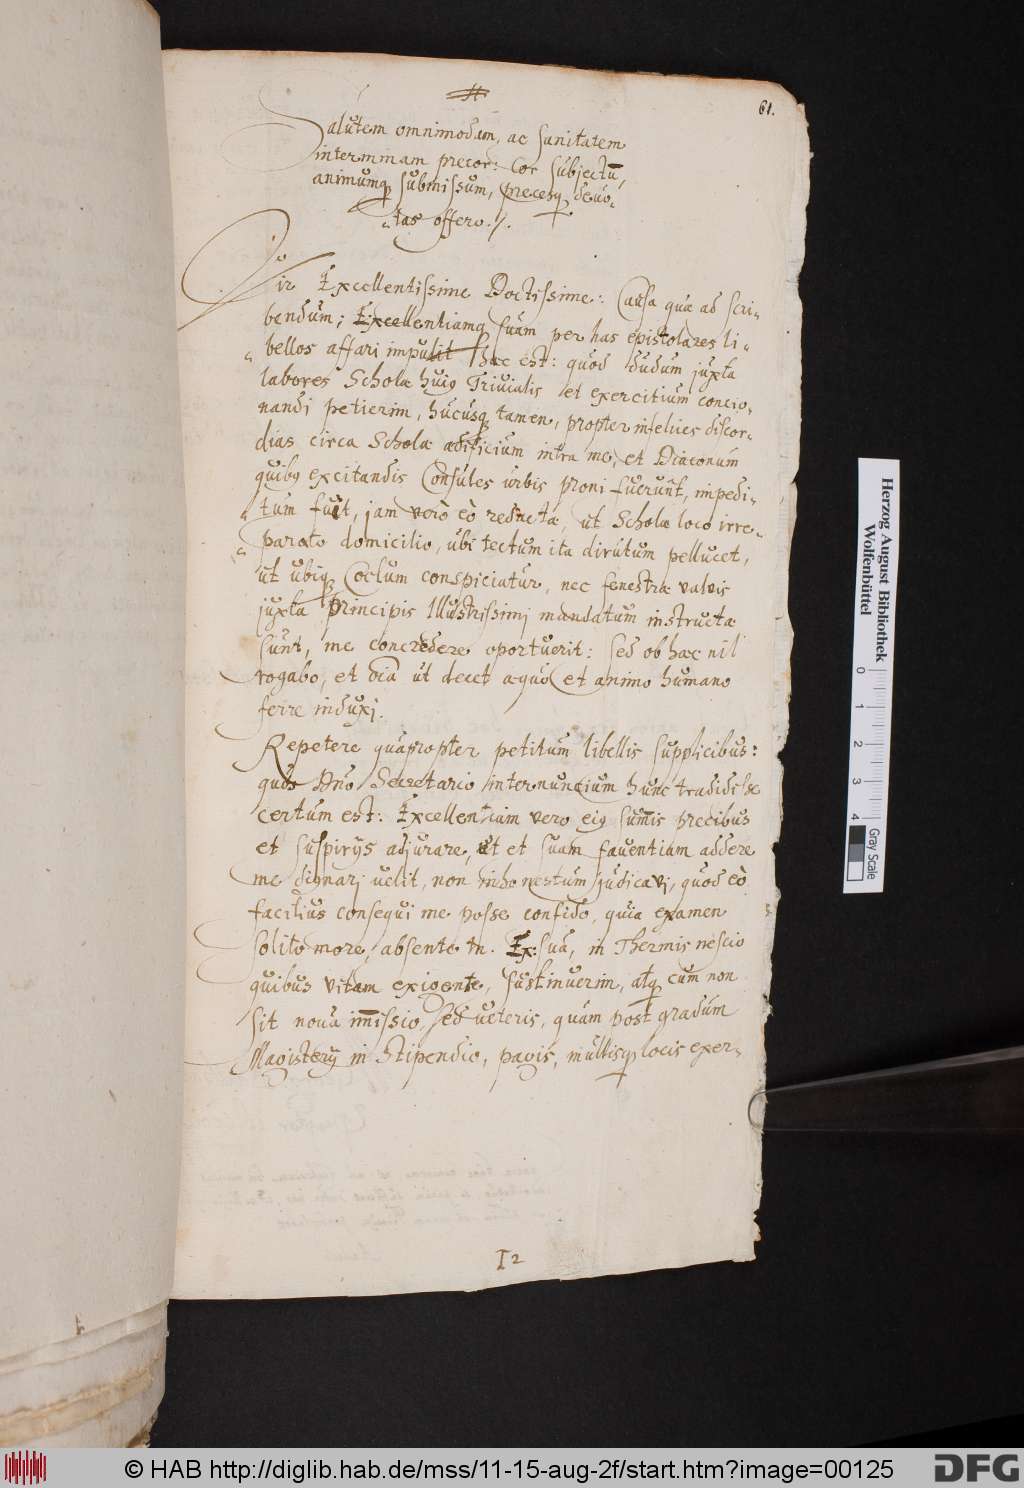 61.
Salutem omnimodam, ac sanitatem
interminam precor: Cor subjectu̅,
animumq₃ submissum, precesq₃ devo-
-tas offero./.
Vir Excellentissime Doctissime: Causa quæ ad scri-
bendum; Excellentiamq suam per has epistolares li-
bellos affari impulit hæc est: quod dudum juxta
labores Scholæ huiq Trivialis et exercitium concio-
nandj petierim, hucusq tamen, propter infelices discor-
dias circa Scholæ ædificium intra me, et Diaconum
quibq excitandis Consules urbis proni fuerunt, impedi-
tum fuit, jam vero eò redacta, ut Scholæ loco irre-
parato domicilio, ubi tectum ita dirutum pellucet,
ut ubiq₃ Coelum conspiciatur, nec fenestræ valvis
juxta Principis Illustrissimj mandatum instructæ
sunt, me concredere oportuerit: sed ob hæc nil
rogabo, et oia̅ ut decet æquo et animo humano
ferre induxj.
Repetere quapropter petitum libellis supplicibus:
quos Dn̅o Secretario internuncium hunc tradidisse
certum est: Excellentiam vero eiq sum̅is precibus
et suspirijs adjurare, ut et suam faventiam addere
me dignarj velit, non inhonestum judicavj, quod eò
facilius consequi me posse confido, quia examen
solito more, absente tn. Ex: suâ, in Thermis nescio
quibus vitam exigente, sustinuerim, atq₃ cum non
sit nova im̅issio, sed veteris, quam post gradum
Magisterij in stipendio, pagis, multisq₃ locis exer-
I2
Herzog August Bibliothek
Wolfenbüttel
0 1 2 3 4
Gray Scale
© HAB http://diglib.hab.de/mss/11-15-aug-2f/start.htm?image=00125
DFG